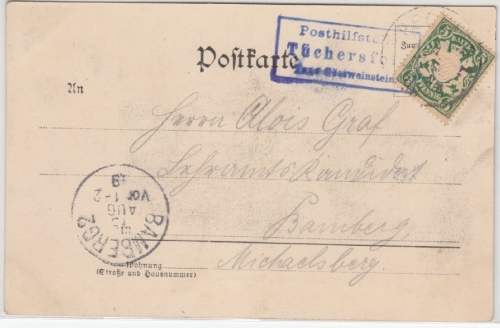 Posthilfstelle
Tüchersfeld
Taxe Gössweinstein
Postkarte
An
Herrn Alois Graf
Lehramtskandidat
Bamberg
Michaelsberg.
BAMBERG 2
AUG
Vor 1-2
Wohnung
(Straße und Hausnummer)